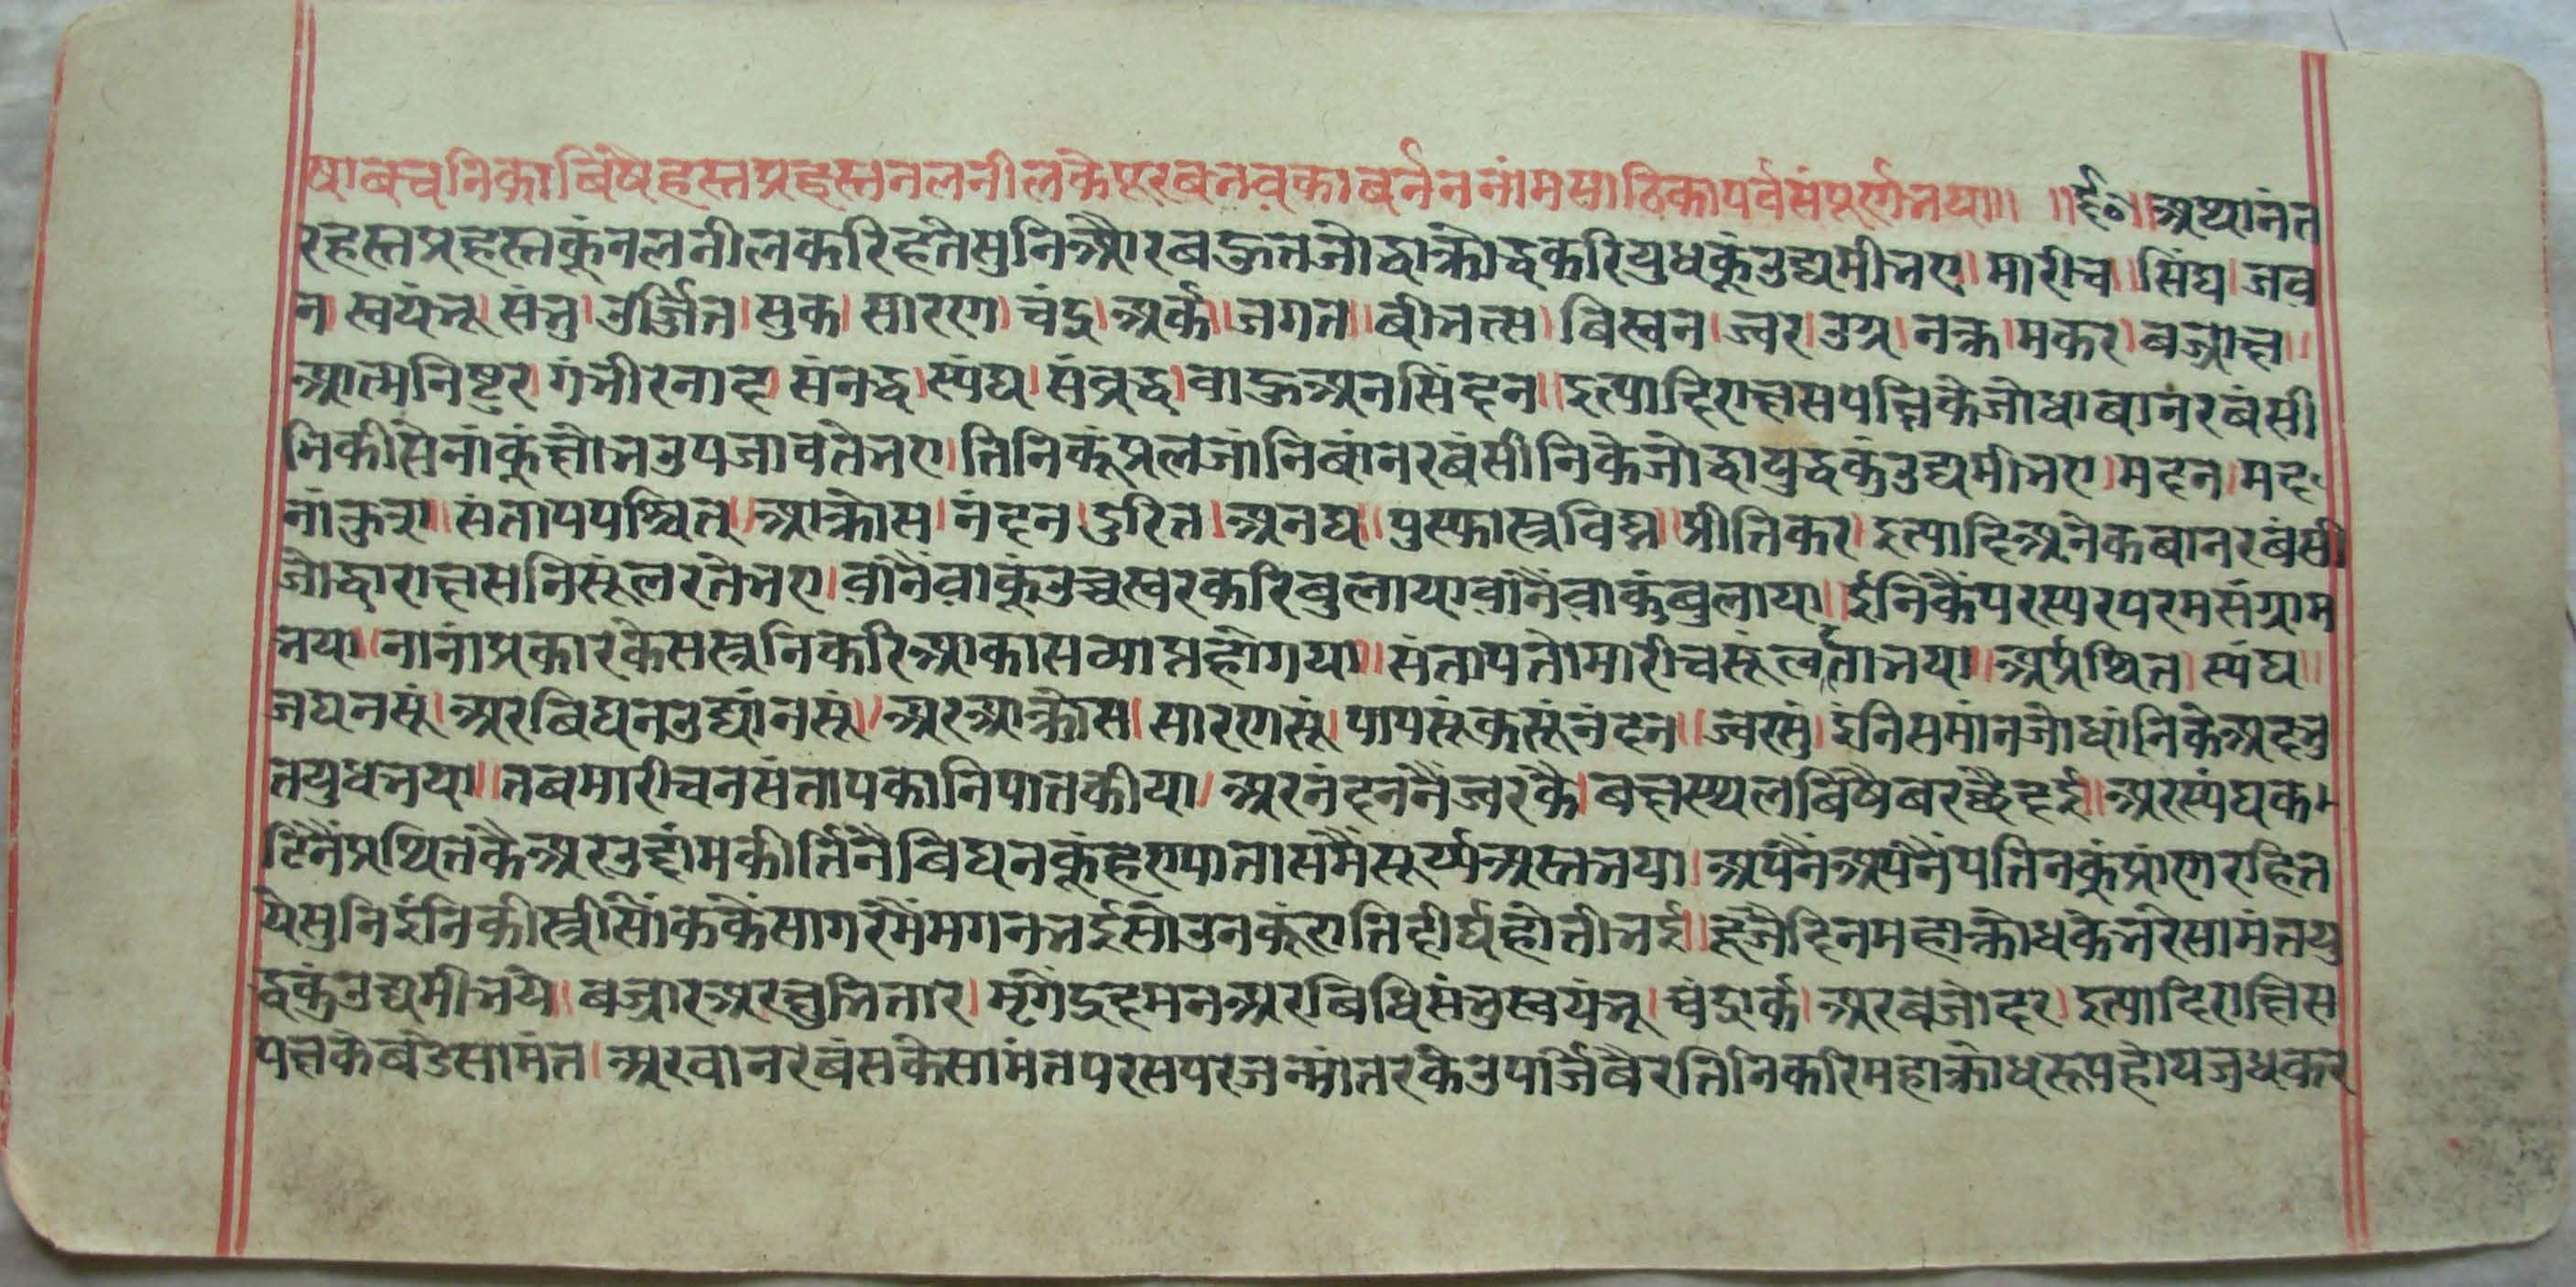 षाबचनिकाबिषैहस्तप्रहस्तनलनीलकेपूरबभवकाबर्ननननांमसाठिकापर्वसंपूर्णभया॥ ॥ई०॥अथानंत
रहस्तप्रहस्तकूंनलनीलकरिहतेसुनिऔरबहुतजोद्धाक्रोद्धकरियुधकूंउद्यमीभए।मारीच॥सिंघ।जव
न।स्वयंभू।संभु।उर्ज्जित।सुक।सारण।चंद्र।अर्क।जगत॥बीभत्स।बिस्वन।ज्वर।उग्र।नक्र।मकर।बज्राक्ष॥
आत्मनिष्टुर।गंभीरनाद।संनद्ध।स्पंघ।संव्रद्ध।वाहुअनसिंदन॥इत्यादिराक्षसपक्षिकेजोधाबानरबंसी
निकीसेनांकूंक्षोभउपजावतेभए।तिनिकूंप्रलजांनिबांनरबंसीनिकेजोद्धायुद्धकूंउद्यमीभए।मदन।मद
नांकुरा॥संतापपश्चित्।आक्रोस।नंदन।दुरित।अनघ॥पुस्फास्त्रविघ्न।प्रीतिकर।इत्यादिअनेकबानरबंसी
जोद्धाराक्षसनिसूंलरतेभए।वांनैवाकूंउच्चस्वरकरिबुलायावांनैवाकूंबुलाया॥ईनिकैंपरस्परपरमसंग्राम
भया॥नानांप्रकारकेसस्त्रनिकरिआकासव्याप्तहोगया॥संतापतोमारीचसूंलर्ताभया॥अर्प्रथित।स्पंघ॥
जघनसूं।अरबिघनउद्यांनसूं।अरआक्रोस।सारणसूं।पापसूंक्रसूंनंदन॥ज्वरसूं।इनिसमांनजोधांनिकेअदभु
तयुधभया॥तबमारीचनसंतापकानिपातकीया।अरनंदननैंज्वरकै।बक्षस्थलबिषैबरछैदई॥अरस्पंघक
टिनैंप्रथितकैअरउद्दांमकीर्तिनैबिघनकूंहएयातासमैंसूर्य्यअस्तभया।अपनैंअपनैंपतिनकूंप्रांणरहित
येसुनिईनिकीस्त्रीसोंककेसागरमैंमगनभईसोउनकूंरातिदीर्घहोतीभई॥दूजैदिनमहाक्रोधकेभरेसामंतयु
द्धकूंउद्यमीभये॥बज्रारअरक्षुभितार।मृगेंद्रदमनअरबिधिसंभुस्वयंभू।चंद्रार्क।अरबजोदर।इत्यादिराक्षिस
पक्षकेबडेसामंत।अरवानरबंसकेसामंतपरसपरजन्मांतरकेउपार्जिबैरतिनिकरिमहाक्रोधरूपहोयजुधकर